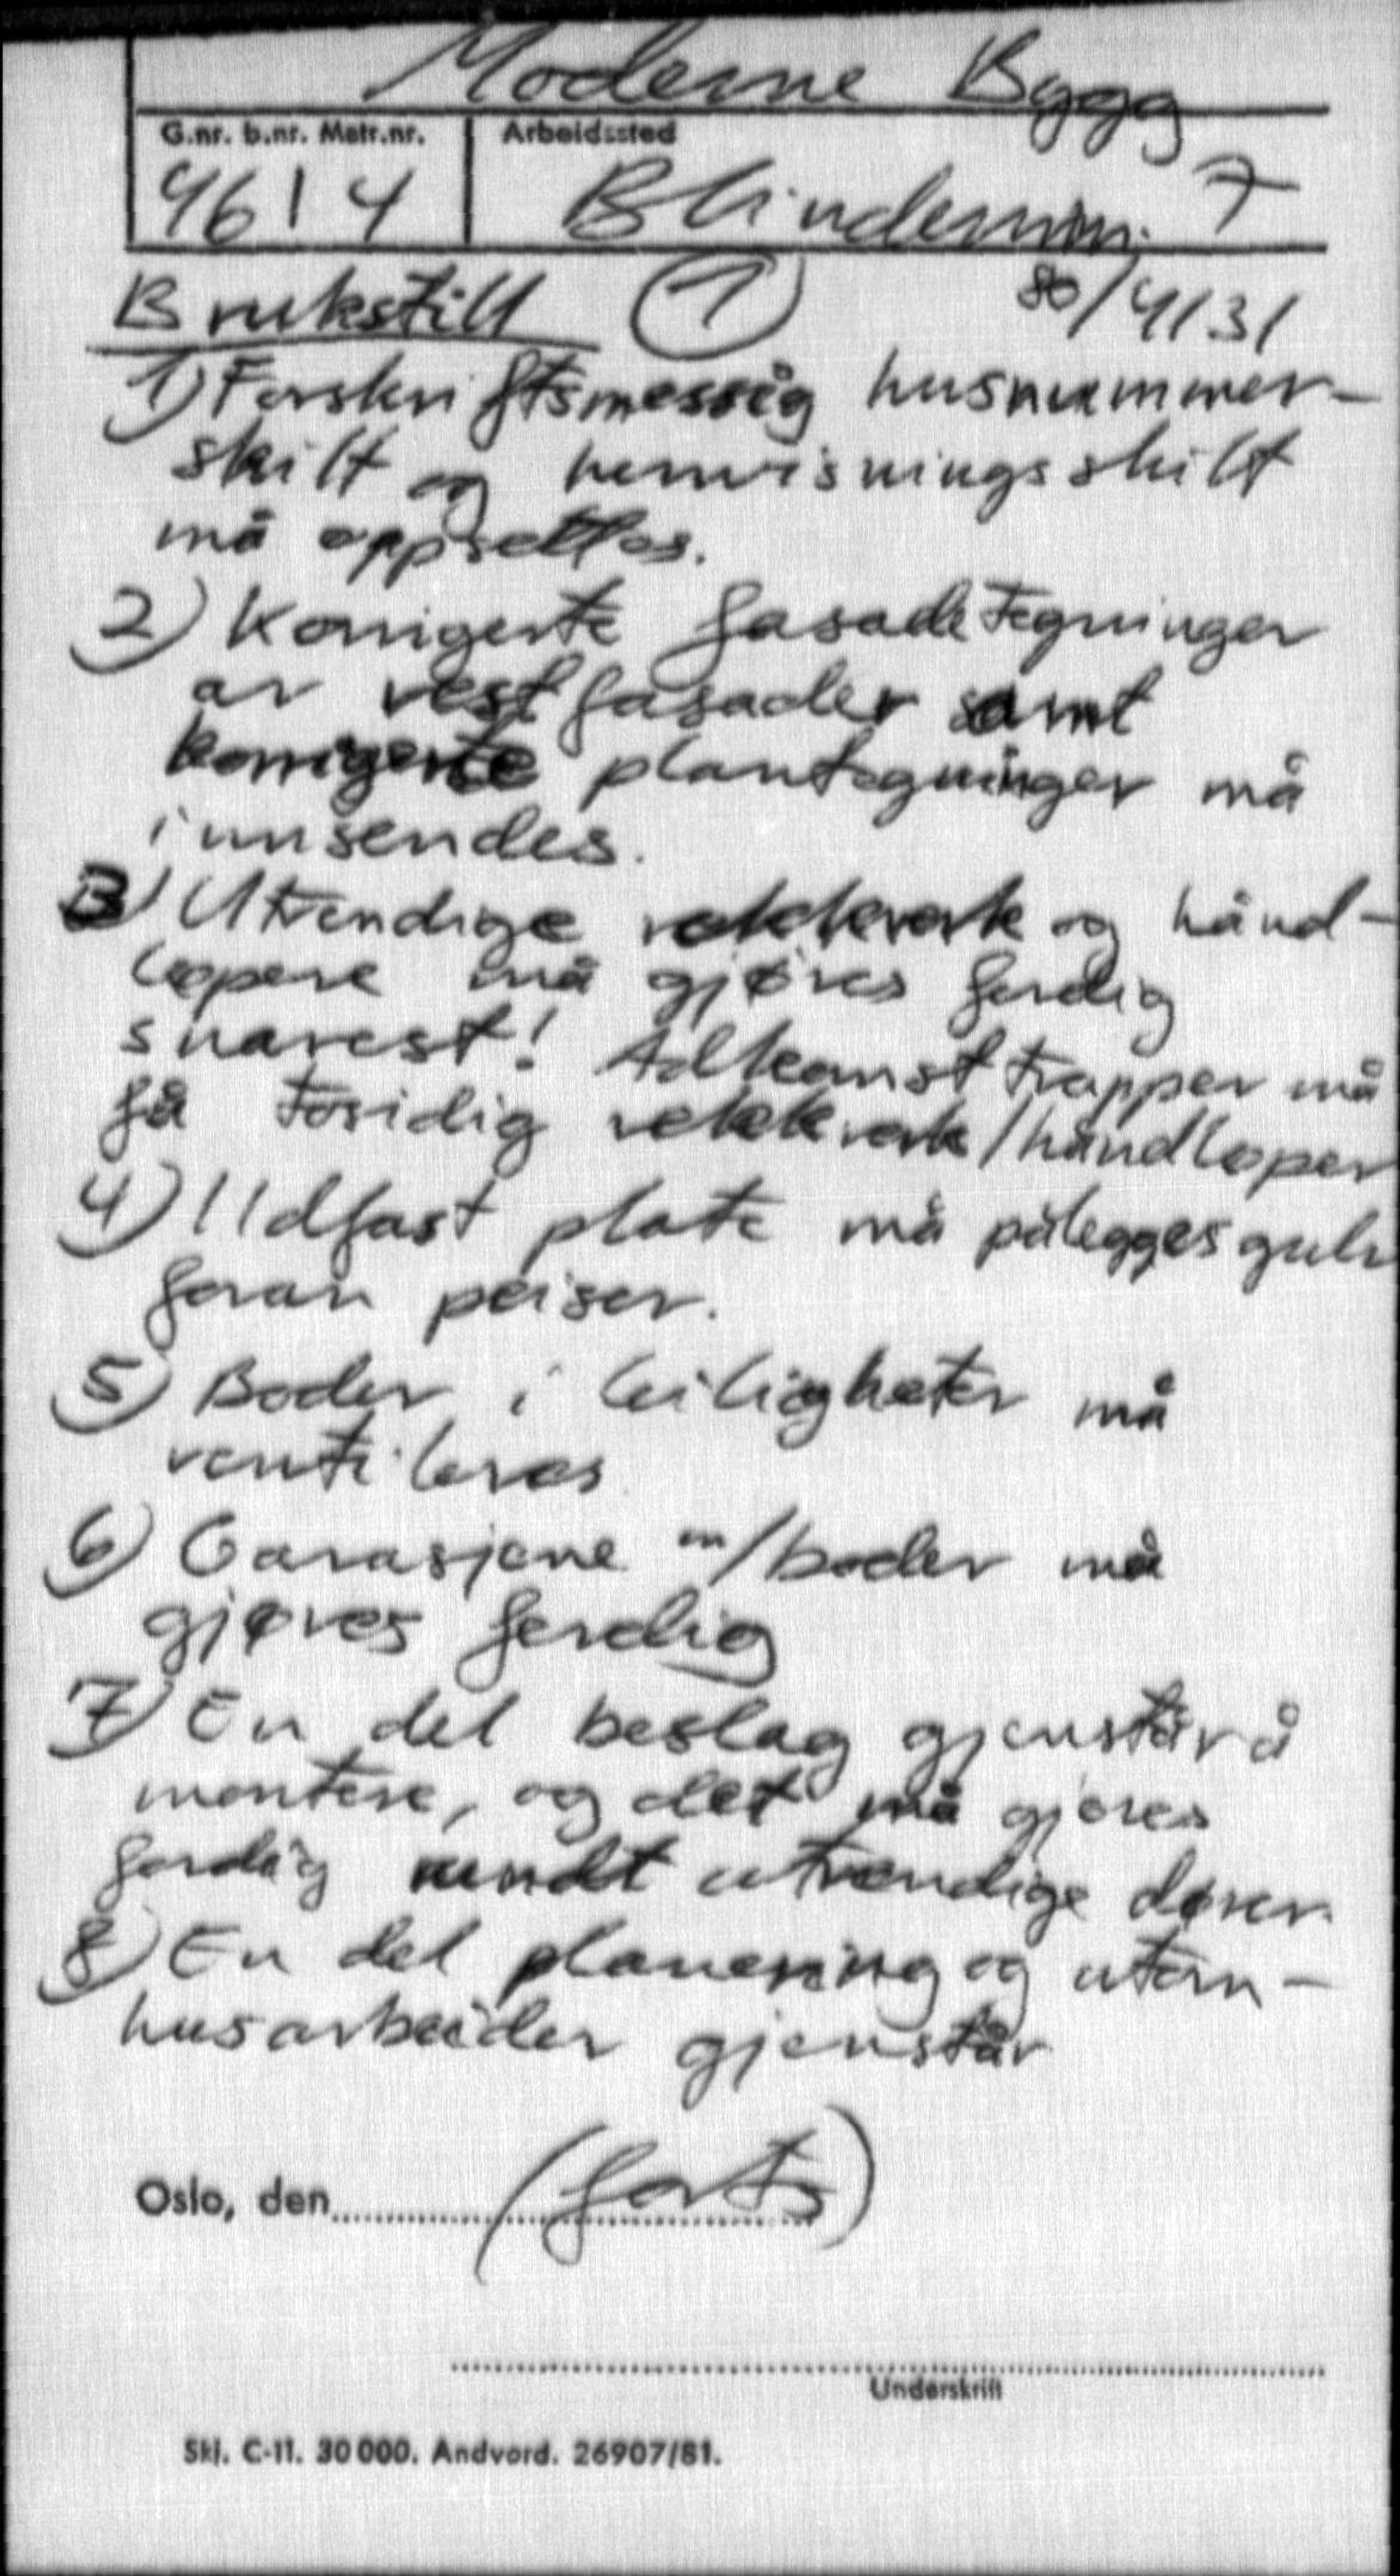 Moderne Bygg
G.nr. b.nr. Matr.nr. Arbeidssted
46 | 4 Blindernvn. 7
Brukstill 1 80/4131
1) Forskriftsmessig husnummer-
skilt og henvisningsskilt
må oppsettes.
2) Korrigerte fasadetegninger
av vestfasader samt
korrigerte plantegninger må
innsendes.
3) Utvendige rekkverk og hånd-
løpere må gjøres ferdig
snarest! Adkomsttrapper må
få tosidig rekkverk/håndløper
4) Ildfast plate må pålegges gulv
foran peiser.
5) Boder i leiligheter må
ventileres
6) Garasjene m/boder må
gjøres ferdig
7) En del beslag gjenstår å
montere, og det må gjøres
ferdig rundt utvendige dører.
8) En del planering og utom-
husarbeider gjenstår
Oslo, den (forts)
Underskrift
Skj. C-11. 30 000. Andvord. 26907/81.